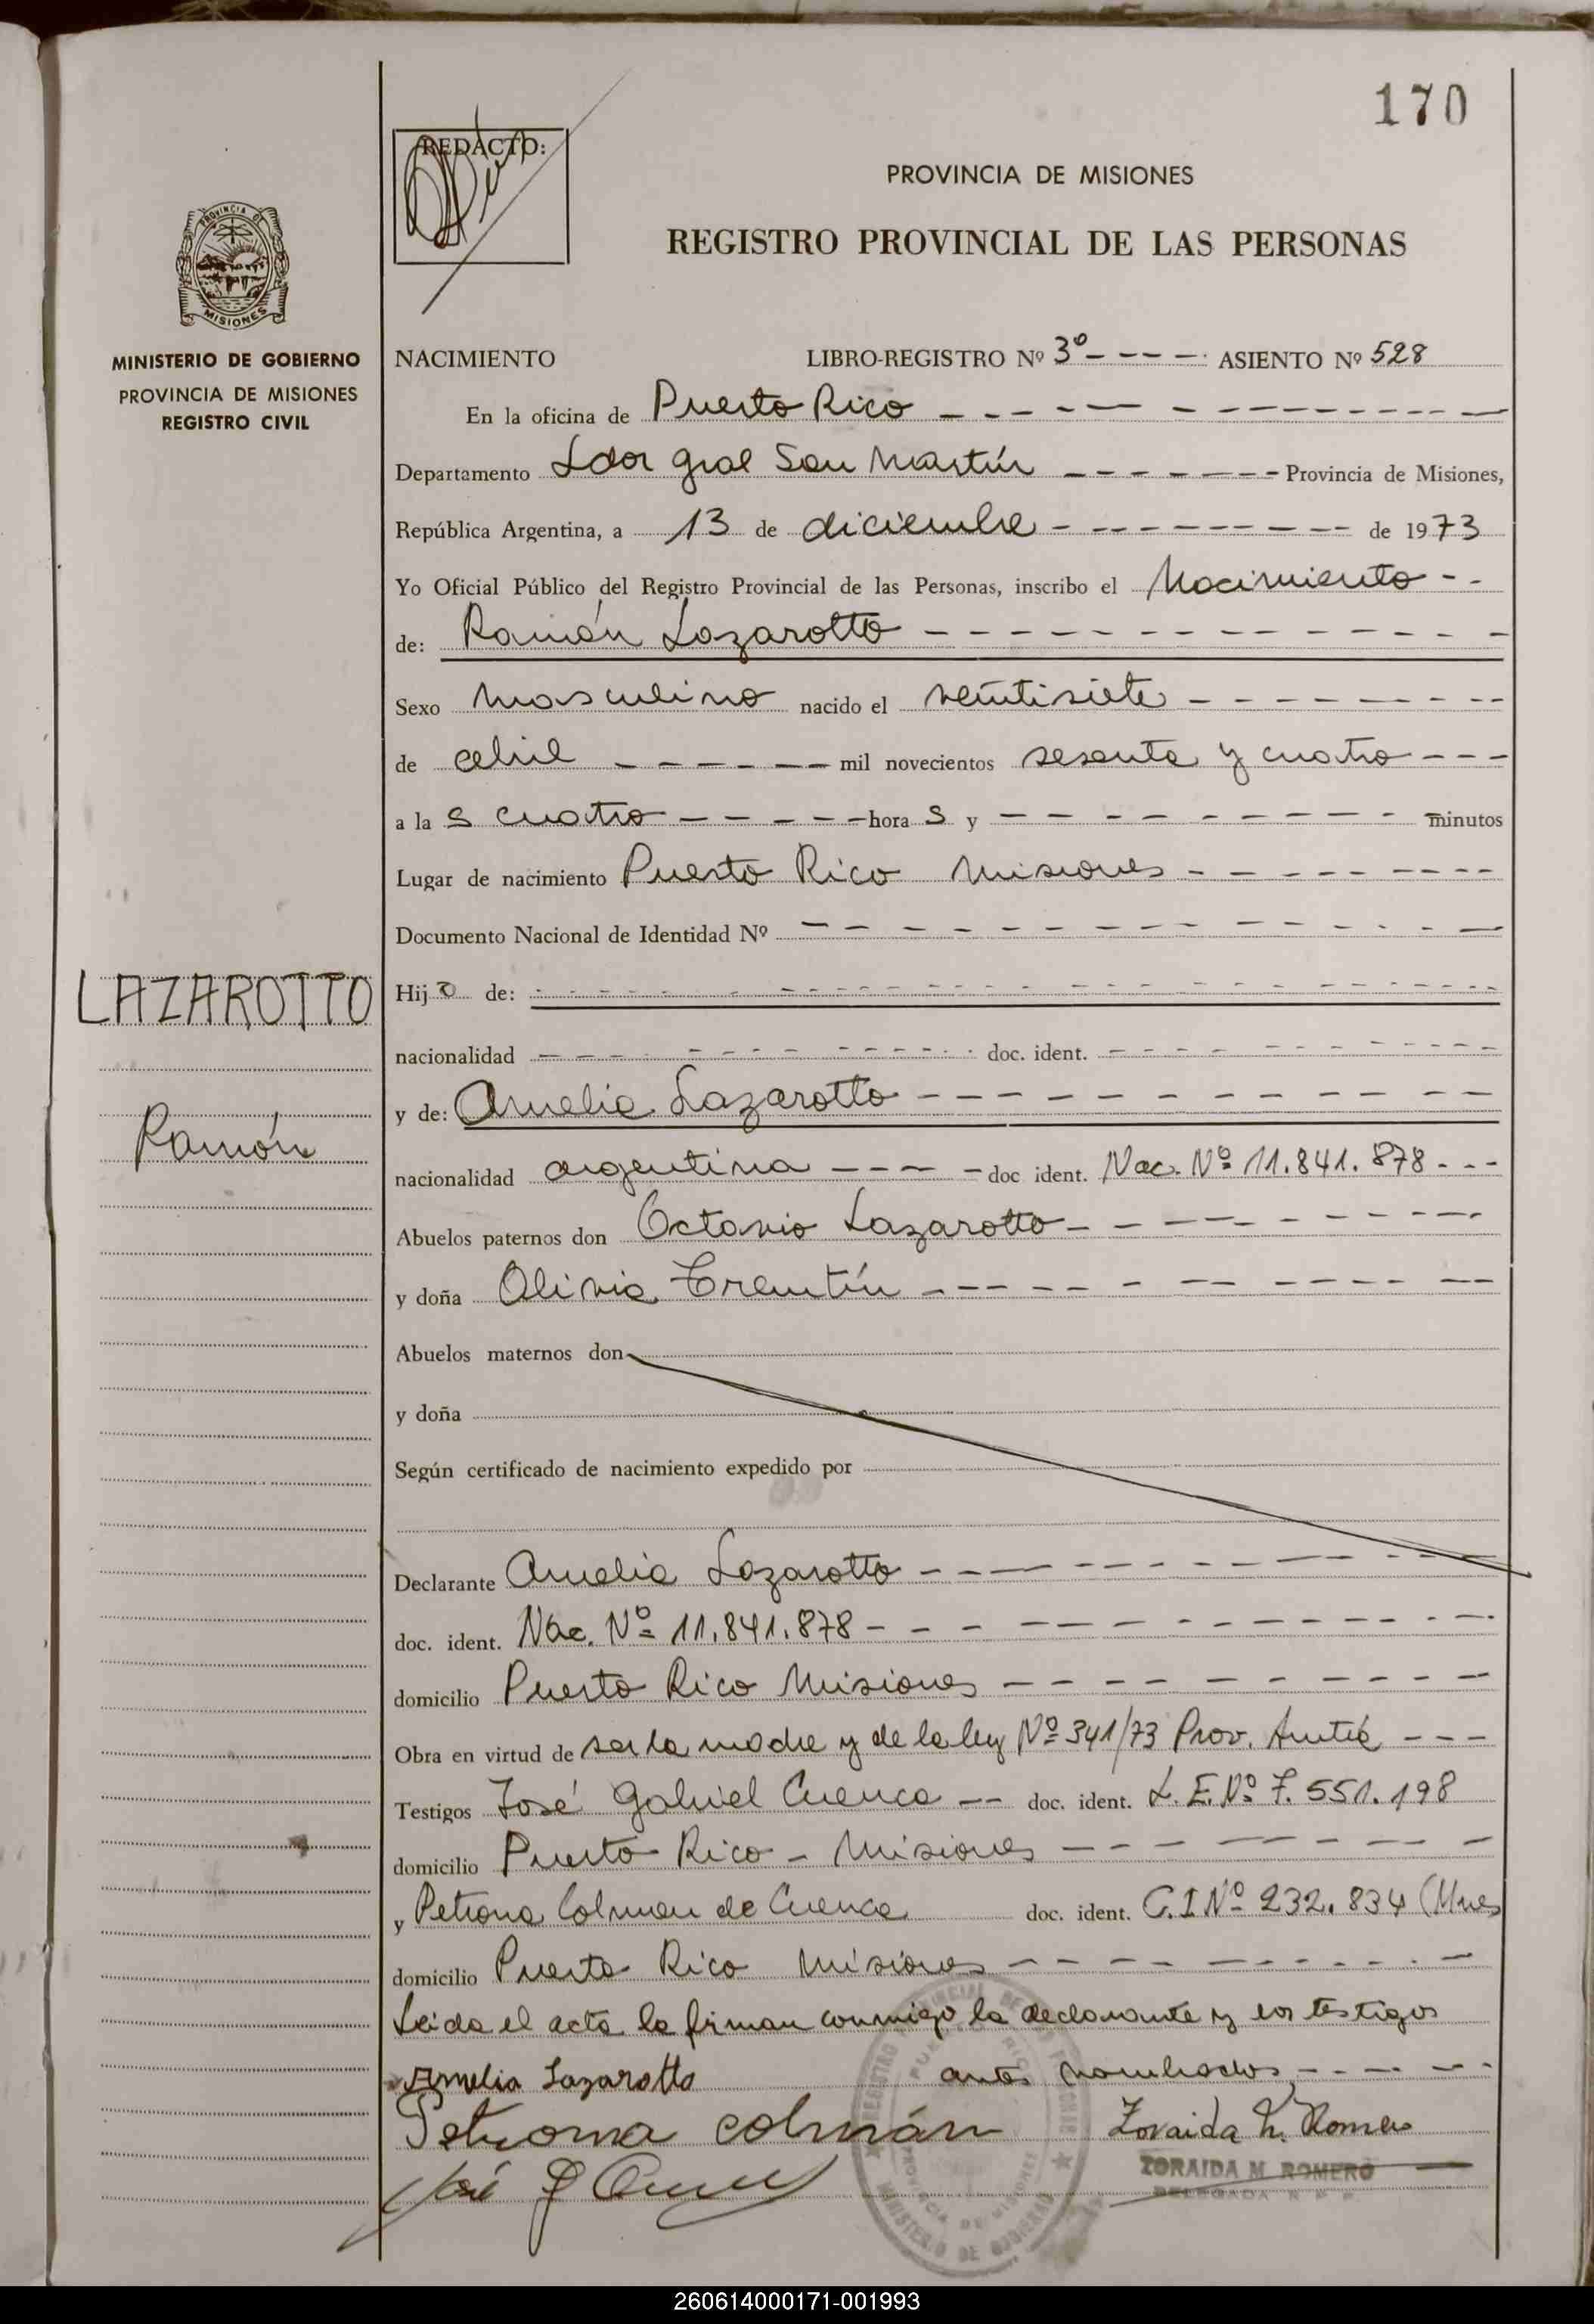 170
REDACTO:
PROVINCIA DE MISIONES
REGISTRO PROVINCIAL DE LAS PERSONAS
PROVINCIA DE
MISIONES
MINISTERIO DE GOBIERNO
PROVINCIA DE MISIONES
REGISTRO CIVIL
LAZAROTTO
Ramón
NACIMIENTO LIBRO-REGISTRO Nº 3º - - - - ASIENTO Nº 528
En la oficina de Puerto Rico
Departamento Ldor gral San Martín Provincia de Misiones,
República Argentina, a 13 de diciembre de 1973
Yo Oficial Público del Registro Provincial de las Personas, inscribo el Nacimiento
de: Ramón Lazarotto
Sexo masculino nacido el veintisiete
de abril mil novecientos sesenta y cuatro
a la s cuatro hora s y minutos
Lugar de nacimiento Puerto Rico Misiones
Documento Nacional de Identidad Nº
Hij o de:
nacionalidad doc. ident.
y de: Amelia Lazarotto
nacionalidad argentina doc ident. Nac. Nº 11.841.878
Abuelos paternos don Octavio Lazarotto
y doña Olivia Trentín
Abuelos maternos don
y doña
Según certificado de nacimiento expedido por
Declarante Amelia Lazarotto
doc. ident. Nac. Nº 11.841.878
domicilio Puerto Rico Misiones
Obra en virtud de ser la madre y de la ley Nº 341/73 Prov.
Testigos José Gabriel Cuenca doc. ident. L.E.Nº 7.551.198
domicilio Puerto Rico - Misiones
y Petrona Colman de Cuenca doc. ident. C.I Nº 232.834 (Mnes
domicilio Puerto Rico Misiones
Leida el acta la firman conmigo la declarante y los testigos
antes nombrados
Amelia Lazarotto
Petrona colmán Zoraida M. Romero
José G Cuenca
ZORAIDA M. ROMERO
DELEGADA R P P
260614000171-001993